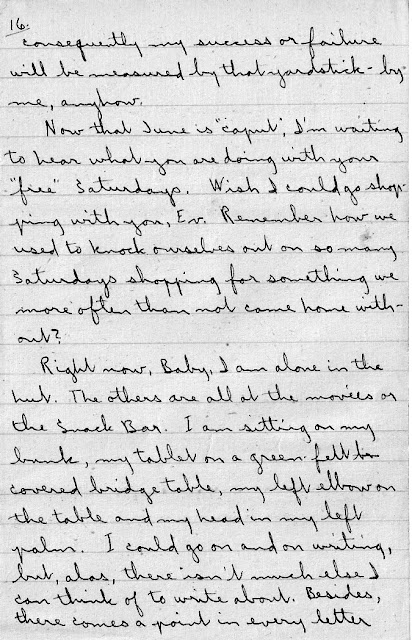 16.
consequently my success or failure
will be measured by that yardstick - by
me, anyhow.
Now that June is "caput", I'm waiting
to hear what you are doing with your
"free" Saturdays. Wish I could go shop-
ping with you, Ev. Remember how we
used to knock ourselves out on so many
Saturdays shopping for something we
more often than not came home with-
out?
Right now, Baby, I am alone in the
hut. The others are all at the movies or
the Snack Bar. I am sitting on my
bunk, my tablet on a green-felt
covered bridge table, my left elbow on
the table and my head in my left
palm. I could go on and on writing,
but, alas, there isn't much else I
can think of to write about. Besides,
there comes a point in every letter